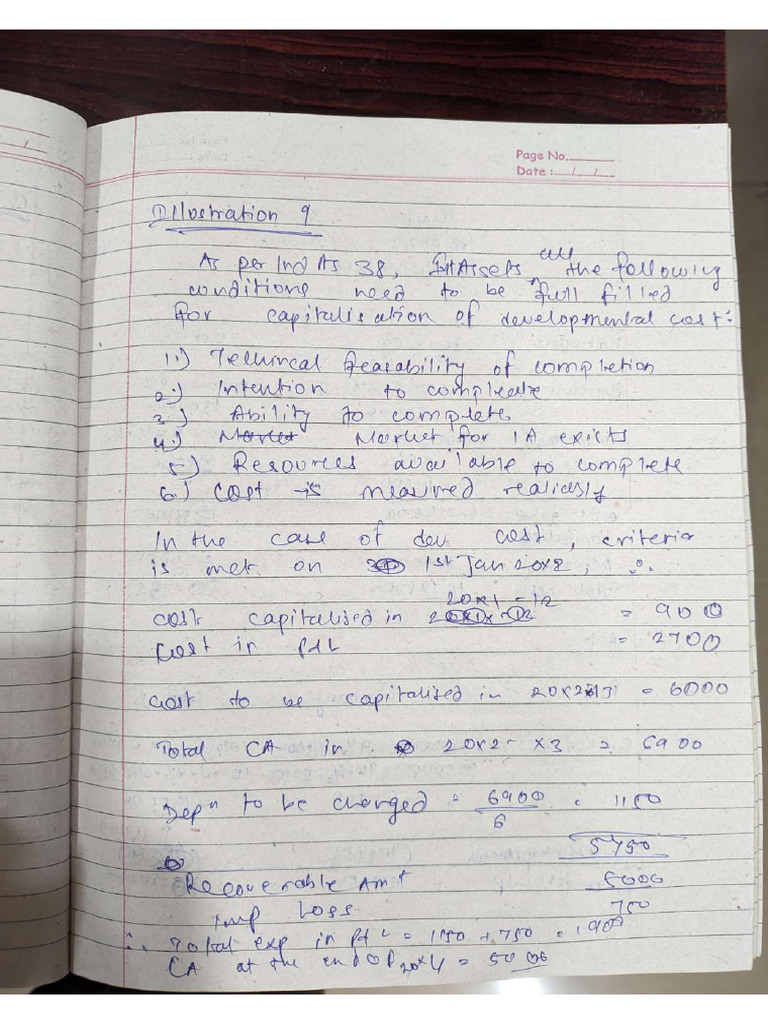 Page No.
Date : / /
Illustration 9
As per Ind As 38, Assets all the following
conditions need to be full filled
for capitalisation of developmental cost:
1.) Techincal feasability of completion
2.) Intention to complete
3.) Ability to complete
4.) Market Market for IA exists
5.) Resources available to complete
6.) Cost is measured
In the case of dev cost, criteria
is met on 1st Jan 20x2, ∴
20x1 - 12
cost capitalised in = 900
Cost in P&L = 2700
Cost to be capitalised in = 6000
Total CA in 20x2 - x3 = 6900
Depn to be charged = 6900/6 = 1150
5750
Recoverable Amt 5000
Imp Loss 750
∴ Total exp in P&L = 1150 + 750 = 1900
CA at the end of 20x4 = 5000